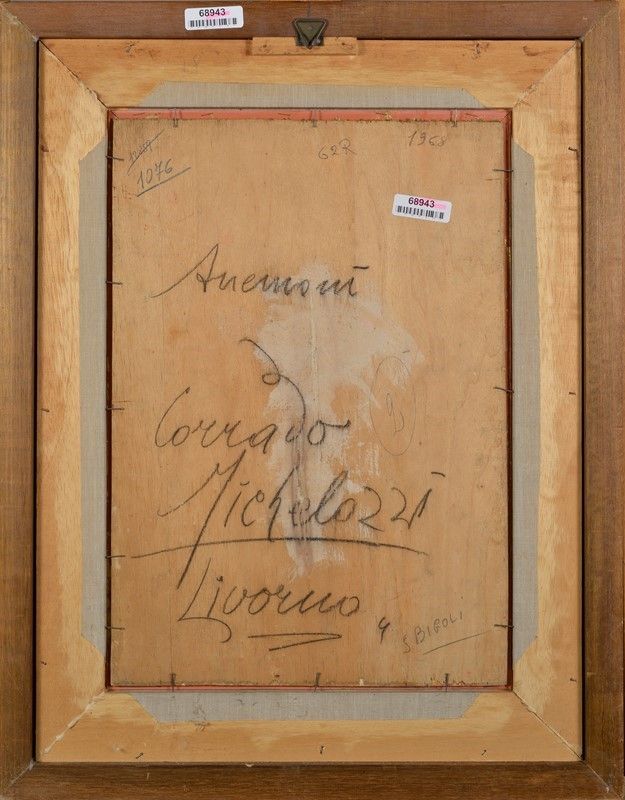 68943
1076
62R
1968
68943
Anemoni
Corrado
Michelozzi
Livorno
4
S BIGOLI